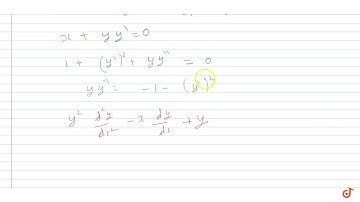 x + y y' = 0
1 + (y')² + y y'' = 0
y y'' = -1 - (y')²
y² d²y/dx² - x dy/dx + y